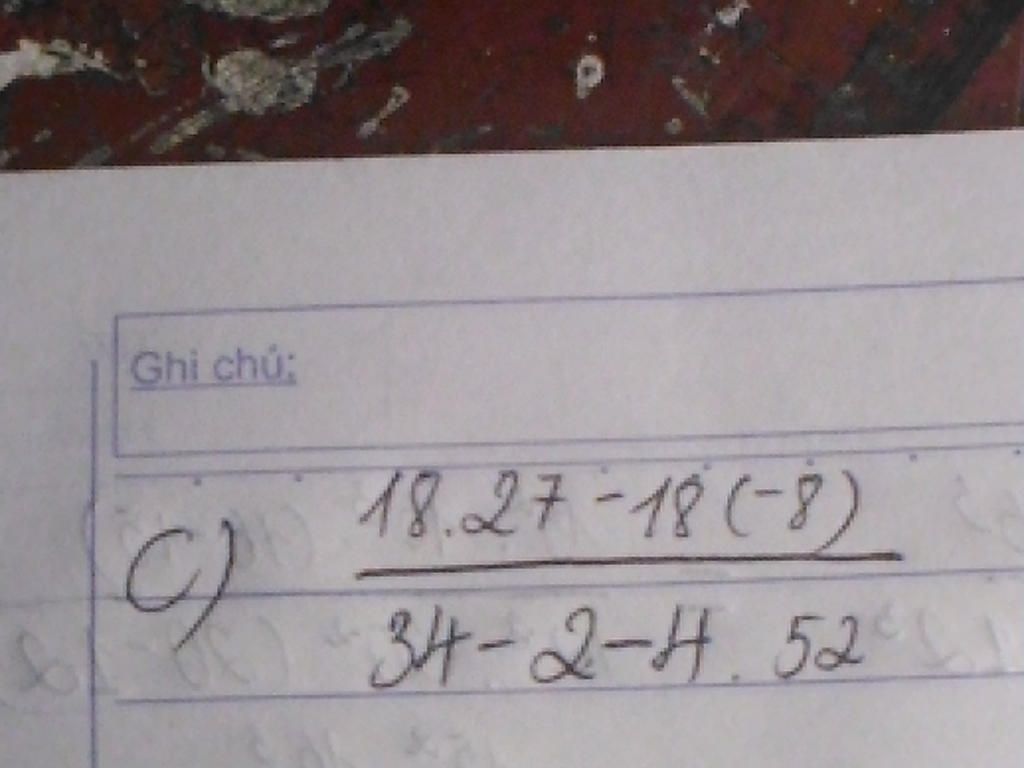 Ghi chú:
C) 18.27 - 18(-8)
34 - 2 - 4 . 52